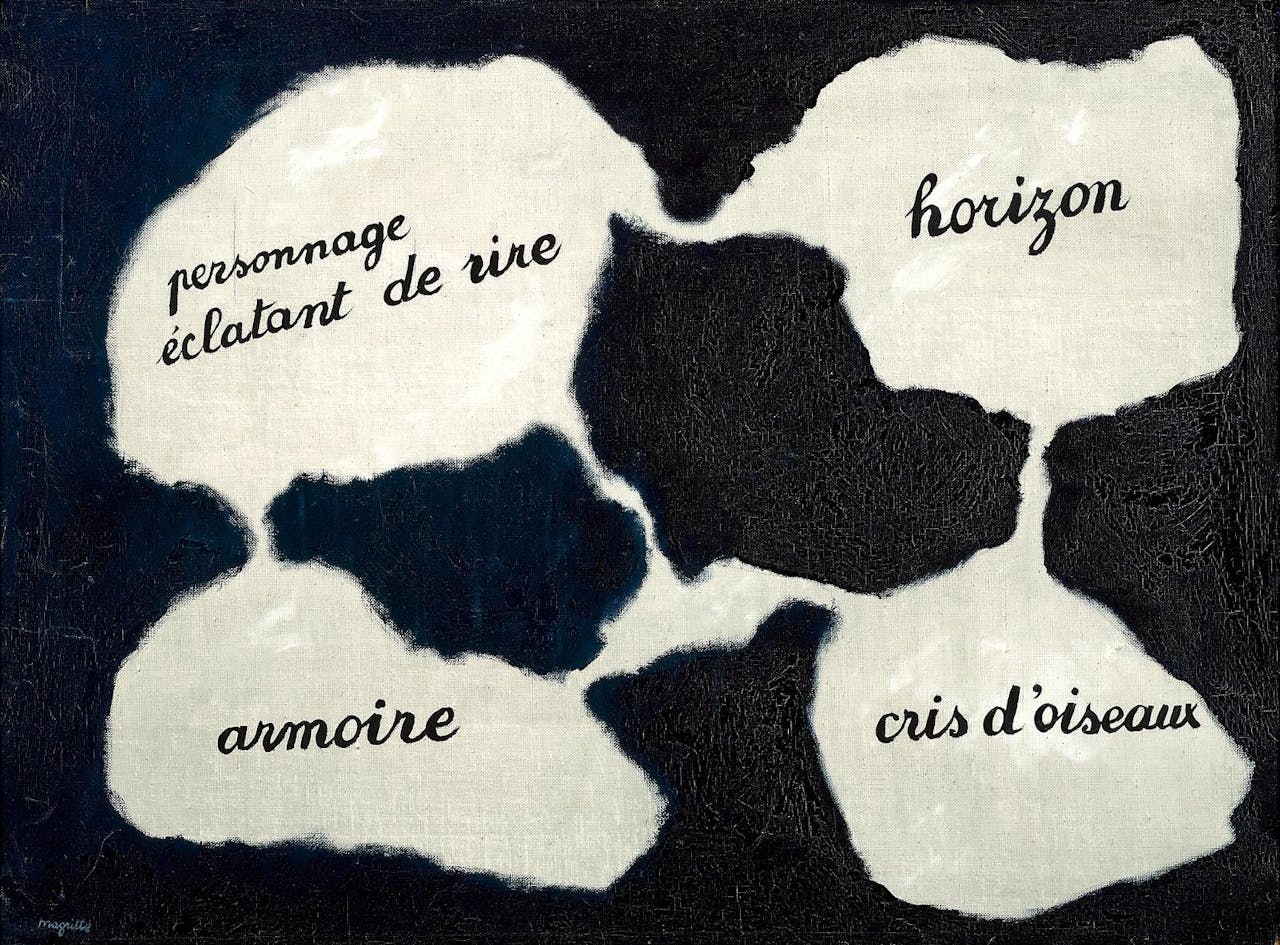 personnage
éclatant de rire
horizon
armoire
cris d'oiseaux
Magritte